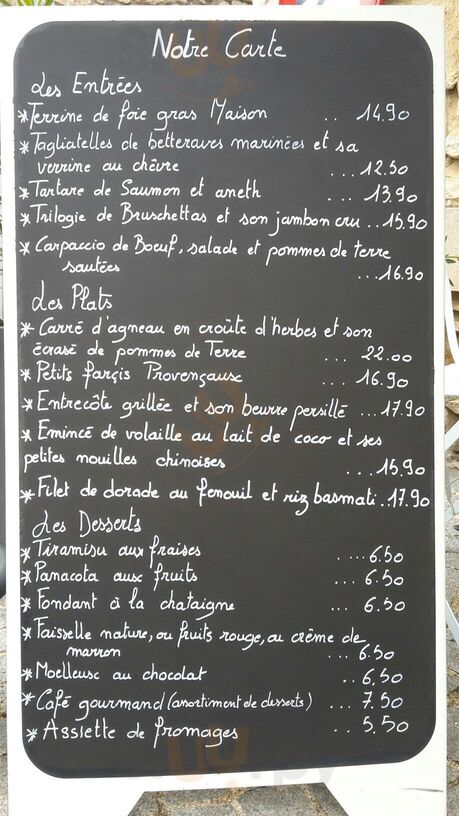 Notre Carte
Les Entrées
*Terrine de foie gras Maison .. 14.90
*Tagliatelles de betteraves marinées et sa
verrine au chêvre ...12.50
*Tartare de Saumon et aneth ... 13.90
*Trilogie de Bruschettas et son jambon cru ..15.90
* Carpaccio de Boeuf, salade et pommes de terre
sautées ...16.90
Les Plats
* Carré d'agneau en croûte d'herbes et son
écrasé de pommes de Terre ... 22.00
* Petits farçis Provençaux ... 16.90
* Entrecôte grillée et son beurre persillé ...17.90
* Emincé de volaille au lait de coco et ses
petites nouilles chinoises ...15.90
* Filet de dorade au fenouil et riz basmati..17.90
Les Desserts
*Tiramisu aux fraises ....6.50
*Panacota aux fruits ... 6.50
* Fondant à la chataigne ... 6.50
*Faisselle nature, ou fruits rouge, ou crème de
marron ... 6.50
*Moelleux au chocolat ..6.50
*Café gourmand (assortiment de desserts) ... 7.50
* Assiette de fromages .. 5.50